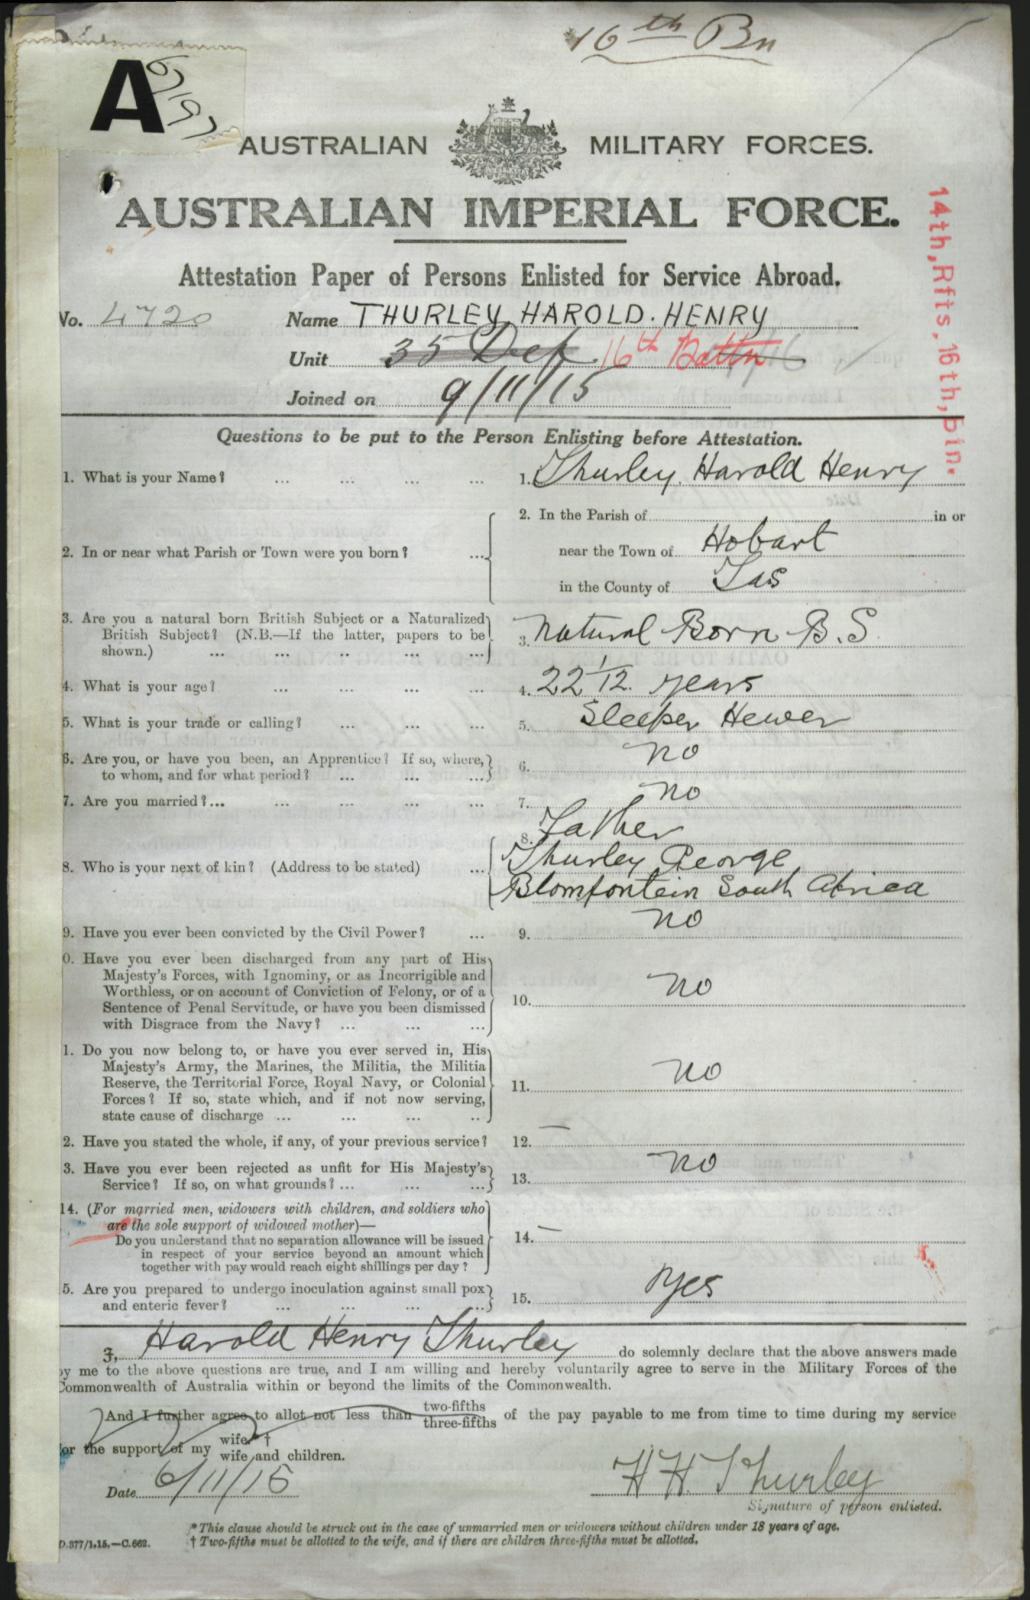 16th Bn
A
AUSTRALIAN MILITARY FORCES.
AUSTRALIAN IMPERIAL FORCE.
Attestation Paper of Persons Enlisted for Service Abroad.
14th, Rfts, 16th, Btn.
No. 4720 Name THURLEY HAROLD. HENRY
Unit 35 Dep 16th Battn
Joined on 9/11/15
Questions to be put to the Person Enlisting before Attestation.
1. What is your Name? ... ... ... ... 1. Thurley, Harold Henry
2. In or near what Parish or Town were you born? ... 2. In the Parish of in or
near the Town of Hobart
in the County of Tas
3. Are you a natural born British Subject or a Naturalized
British Subject? (N.B.—If the latter, papers to be
shown.) ... ... ... ... ... 3. Natural Born B.S
4. What is your age? ... ... ... ... 4. 22 1/12 years
5. What is your trade or calling? ... ... ... 5. Sleeper Hewer
6. Are you, or have you been, an Apprentice? If so, where,
to whom, and for what period? ... ... ... 6. No
7. Are you married?... ... ... ... ... 7. No
8. Who is your next of kin? (Address to be stated) ... 8. Father
Thurley George
Blomfontein South Africa
9. Have you ever been convicted by the Civil Power? ... 9. No
0. Have you ever been discharged from any part of His
Majesty's Forces, with Ignominy, or as Incorrigible and
Worthless, or on account of Conviction of Felony, or of a
Sentence of Penal Servitude, or have you been dismissed
with Disgrace from the Navy? ... ... ... 10. No
1. Do you now belong to, or have you ever served in, His
Majesty's Army, the Marines, the Militia, the Militia
Reserve, the Territorial Force, Royal Navy, or Colonial
Forces? If so, state which, and if not now serving,
state cause of discharge ... ... ... .. 11. No
2. Have you stated the whole, if any, of your previous service? 12. —
3. Have you ever been rejected as unfit for His Majesty's
Service? If so, on what grounds? ... ... ... 13. No
14. (For married men, widowers with children, and soldiers who
are the sole support of widowed mother)—
Do you understand that no separation allowance will be issued
in respect of your service beyond an amount which
together with pay would reach eight shillings per day? 14. —
5. Are you prepared to undergo inoculation against small pox
and enteric fever? ... ... ... ... 15. Yes
I, Harold Henry Thurley do solemnly declare that the above answers made
by me to the above questions are true, and I am willing and hereby voluntarily agree to serve in the Military Forces of the
Commonwealth of Australia within or beyond the limits of the Commonwealth.
*And I further agree to allot not less than two-fifths three-fifths of the pay payable to me from time to time during my service
for the support of my wife * † wife and children.
Date 6/11/15 H H Thurley
Signature of person enlisted.
* This clause should be struck out in the case of unmarried men or widowers without children under 18 years of age.
D.377/1.15.—C.662. † Two-fifths must be allotted to the wife, and if there are children three-fifths must be allotted.